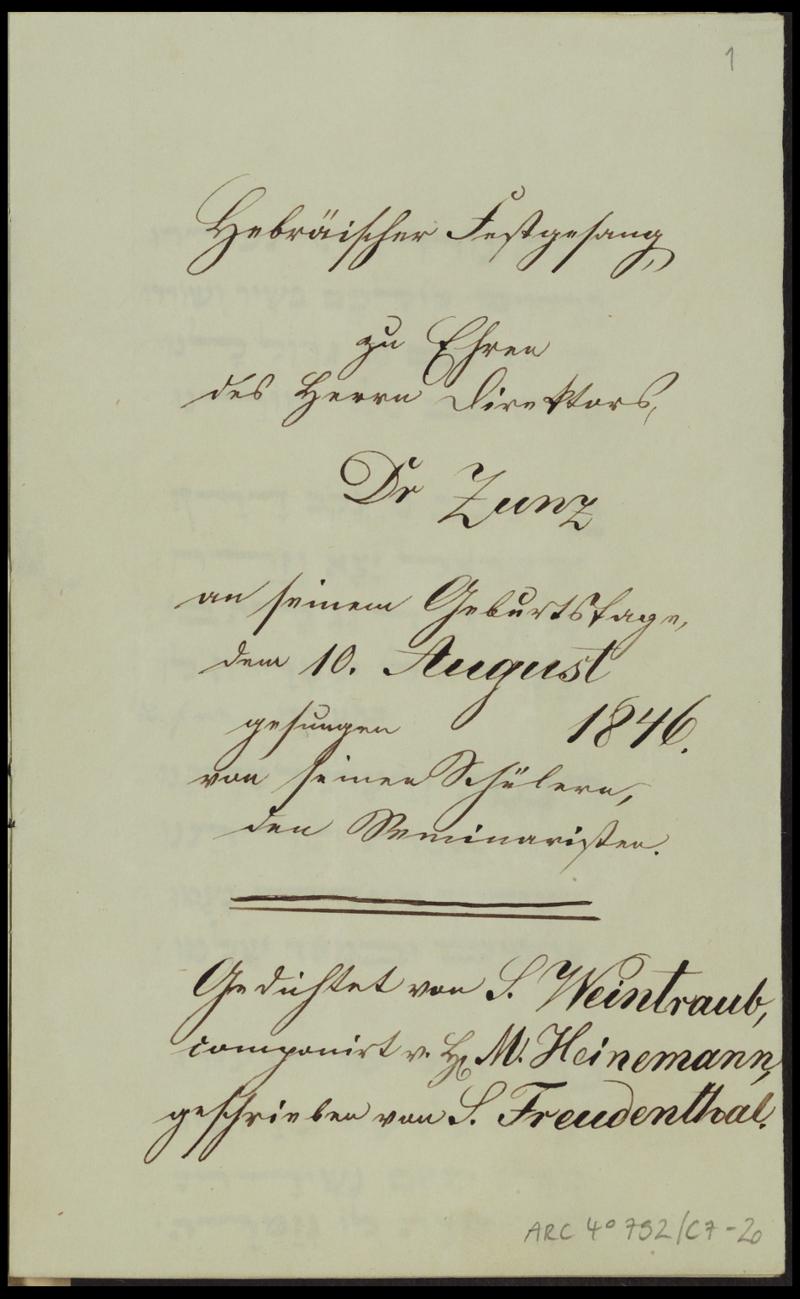 1
Hebräischer Festgesang,
zu Ehren
des Herrn Direktors,
Dr Zunz
an seinem Geburtstage,
dem 10. August
gesungen 1846.
von seinen Schülern,
den Seminaristen.
Gedichtet von S. Weintraub,
componirt v. H. M. Heinemann,
geschrieben von S. Freudenthal.
ARC 4° 792/C7-20